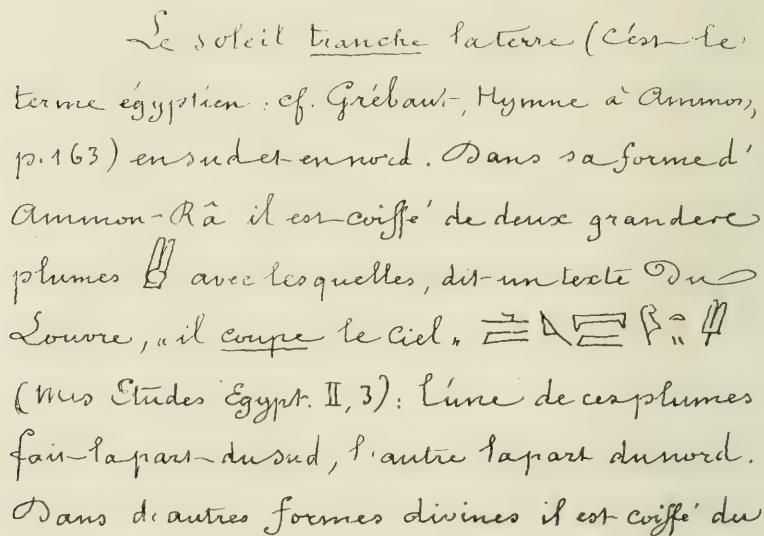 Le soleil tranche la terre (c'est le
terme égyptien : cf. Grébaut, Hymne à Ammon,
p. 163) en sud et en nord. Dans sa forme d'
Ammon-Râ il est coiffé de deux grandes
plumes avec lesquelles, dit un texte du
Louvre, „il coupe le ciel„
(mes Etudes Egypt. II, 3) : l'une de ces plumes
fait la part du sud, l'autre la part du nord.
Dans d'autres formes divines il est coiffé du